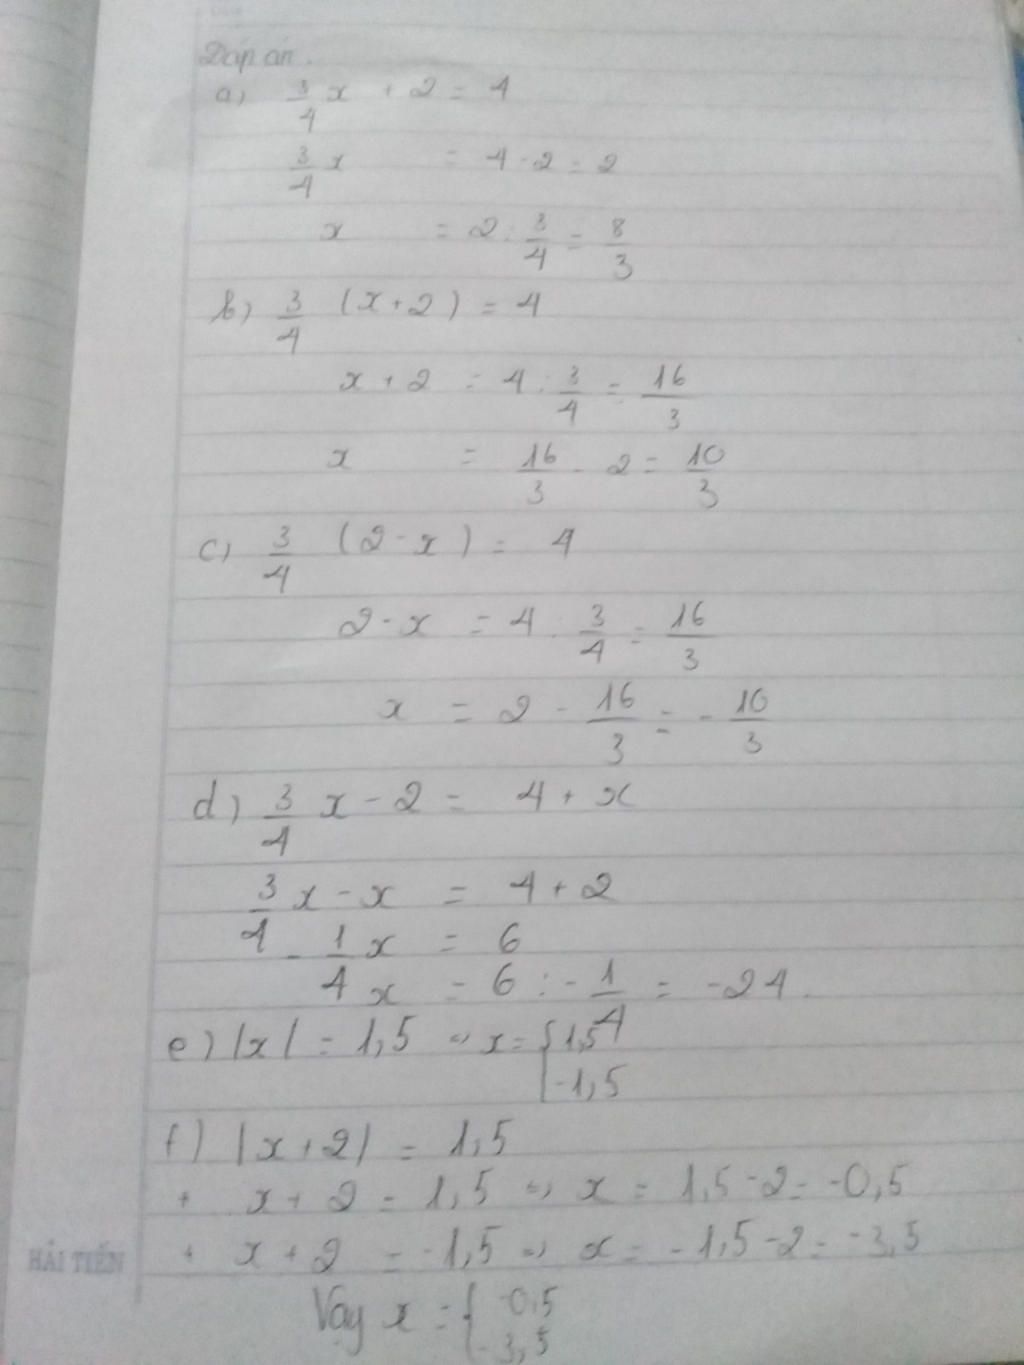 Đáp án.
a) 3/4 x + 2 = 4
3/4 x = 4 - 2 = 2
x = 2 : 3/4 = 8/3
b) 3/4 (x + 2) = 4
x + 2 = 4 : 3/4 = 16/3
x = 16/3 - 2 = 10/3
c) 3/4 (2 - x) = 4
2 - x = 4 : 3/4 = 16/3
x = 2 - 16/3 = - 10/3
d) 3/4 x - 2 = 4 + x
3/4 x - x = 4 + 2
- 1/4 x = 6
x = 6 : - 1/4 = -24.
e) |x| = 1,5 => x = { 1,5
-1,5
f) |x + 2| = 1,5
+ x + 2 = 1,5 => x = 1,5 - 2 = -0,5
+ x + 2 = -1,5 => x = -1,5 - 2 = -3,5
Vậy x = { -0,5
-3,5
HẢI TIẾN